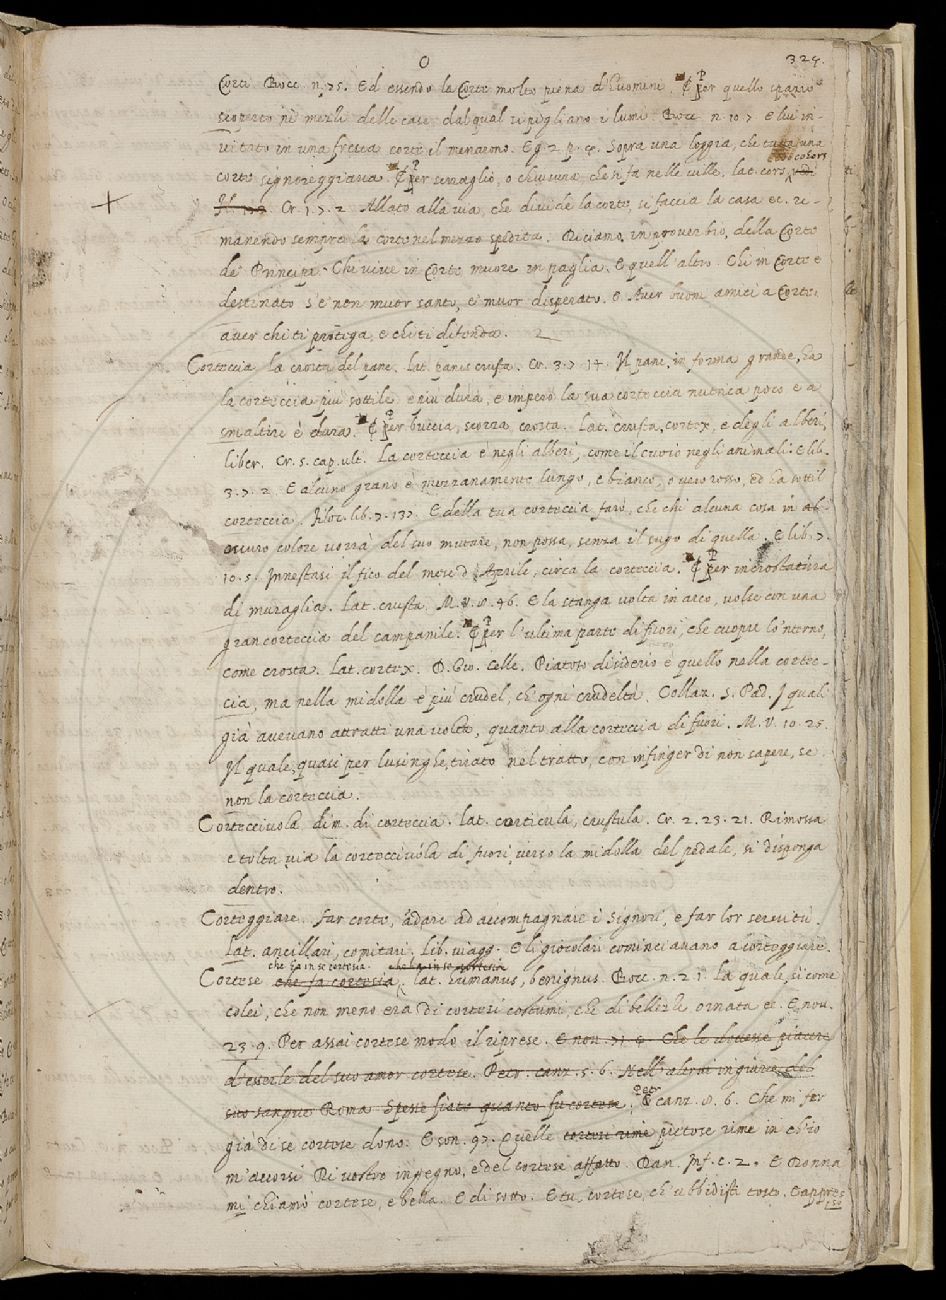 O 324.
Corti. Bocc. n. 75. Ed essendo la Corte molto piena d'huomini. ¶ Per quello spazio
scoperto nè mezzi delle case dal qual si pigliano i lumi. Bocc. n. 10. 7. E lui in-
vitato in una fresca corte il menarono. E g. 2. p. Sopra una loggia, che tutta una
o cohors
corte signoreggiava. ¶ Per serraglio, o chiusura, che si fa nelle ville. lat. cors,
Cr. 1. 7. 2. Allato alla via, che divide la corte, si faccia la casa ec. ri-
manendo sempre la corte nel mezzo spedita. Diciamo in proverbio, della Corte
de' Principi. Che vive in Corte muore in paglia. E quell'altro. Chi in Corte è
destinato s'e' non muor santo, e' muor disperato. E Aver buoni amici a Corte.
aver chi ti protega, e chi ti difenda. 2
Corteccia la crosta del pane. Lat. panis crusta. Cr. 3. 7. 14. Il pane, in forma grande, ha
la corteccia più sottile e più dura, e imperò la sua corteccia nutrica poco e a
smaltire è dura. ¶ Per buccia, scorza, crosta. Lat. crusta, cortex, e degli alberi,
liber. Cr. 5. cap. ult. La corteccia è negli alberi, come il cuoio negli animali. E lib.
3. 7. 2. E alcuno grano è mezzanamente lungo, e bianco, o vero rosso, ed ha sottil
corteccia. Filoc. lib. 7. 137. E della tua corteccia farò, che chi alcuna cosa in
oscuro colore vorrà del suo mutare, non possa, senza il sugo di quella. E lib. 7.
10. 5. Innestasi il fico del mese d'Aprile, circa la corteccia. ¶ Per incrostatura
di muraglia. Lat. crusta. M. V. 8. 46. E la stanga volta in arco, volse con una
gran corteccia del campanile. ¶ Per l'ultima parte di fuori, che cuopre lo 'nterno,
come crosta. Lat. cortex. D. Gio. Celle. Piatoso disiderio è quello nella cortec-
cia, ma nella midolla è più crudel, ch'ogni crudeltà. Collaz. S. Pad. I quali
già avevano attratti una volta, quanto alla corteccia di fuori. M. V. 10. 25.
Il quale, quasi per lusinghe, tirato nel tratto, con infinger di non sapere, se
non la corteccia.
Corteccivola dim. di corteccia. lat. corticula, crustula. Cr. 2. 23. 21. Rimossa
e tolta via la corteccivola di fuori, verso la midolla del pedale, si disponga
dentro.
Corteggiare. far corte, andare ad accompagnare i Signori, e far lor servitù.
Lat. ancillari, comitari. Lib. viagg. E li giocolari cominciavano a corteggiare.
che ha in se cortesia. che ha in se cortesia
Cortese che fa cortesia, lat. humanus, benignus. Bocc. n. 21. La quale, si come
colei, che non meno era di cortesi costumi, che di bellezze ornata ec. E nov.
23. 9. Per assai cortese modo il riprese. E nov. 71. 9. Che le dovesse piacere
d'esserle del suo amor cortese. Petr. canz. 5. 6. Nell' altrui ingiurie del
suo sangue Roma Spesse fiate quanto fu cortese.
Petr.
E canz. 8. 6. Che mi fer
già di se cortese dono. E son. 97. Quelle cortesi rime pietose rime in ch'io
m'accorsi Di vostro ingegno, e del cortese affetto. Dan. Inf. c. 2. E Donna
mi chiamò cortese, e bella. E di sotto. E tu, cortese, ch'ubbidisti tosto. E appres
so